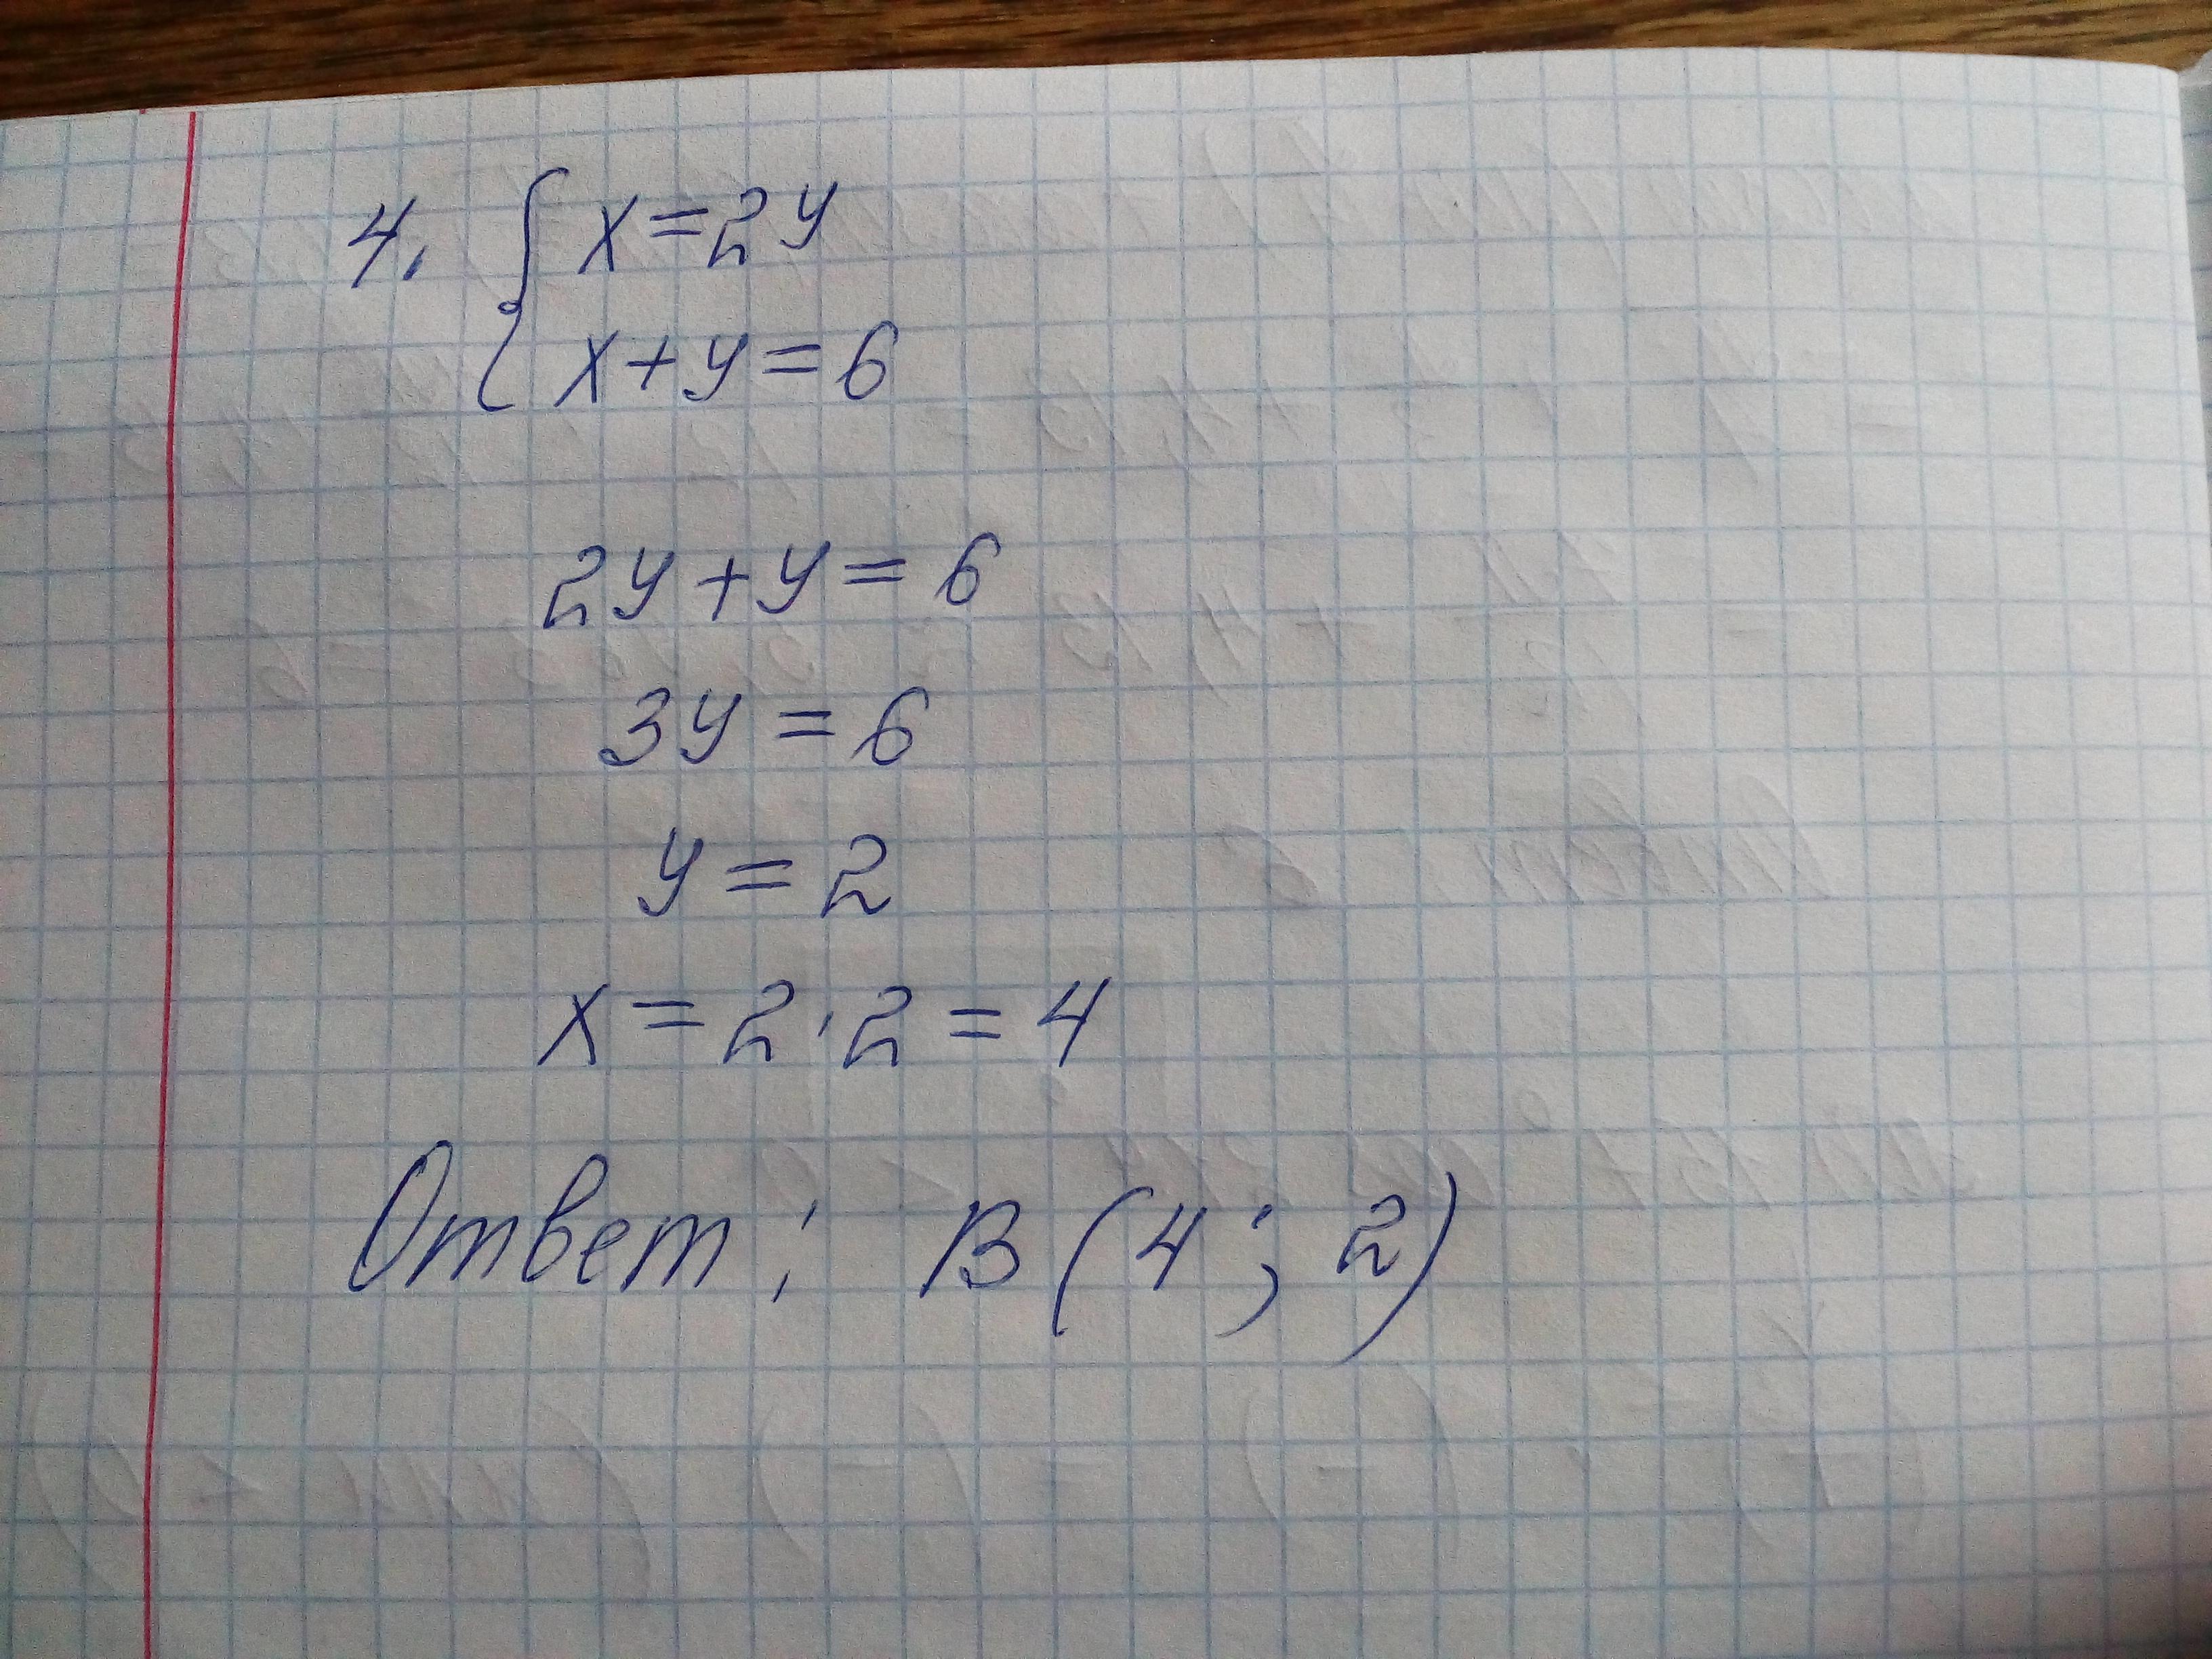 4. { x=2y
x+y=6
2y+y=6
3y=6
y=2
x=2·2=4
Ответ: B(4; 2)